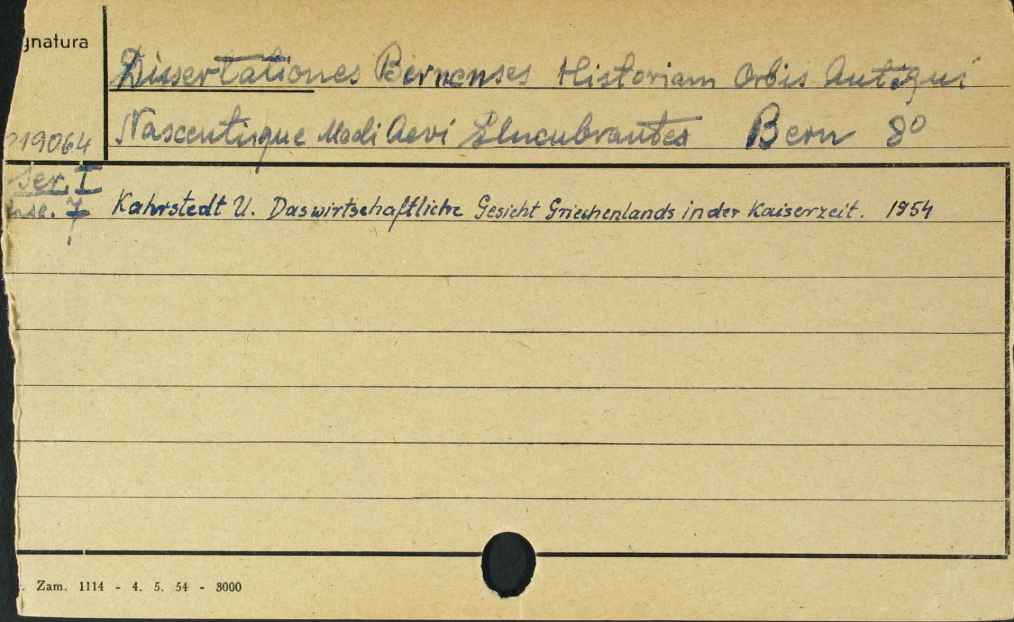 gnatura
Dissertationes Bernenses Historiam Orbis Antiqui
219064 Nascentisque Medi Aevi Elucubrantes Bern 8°
Ser. I
fasc. 7 Kahrstedt U. Das wirtschaftliche Gesicht Griechenlands in der Kaiserzeit. 1954
. Zam. 1114 - 4. 5. 54 - 8000